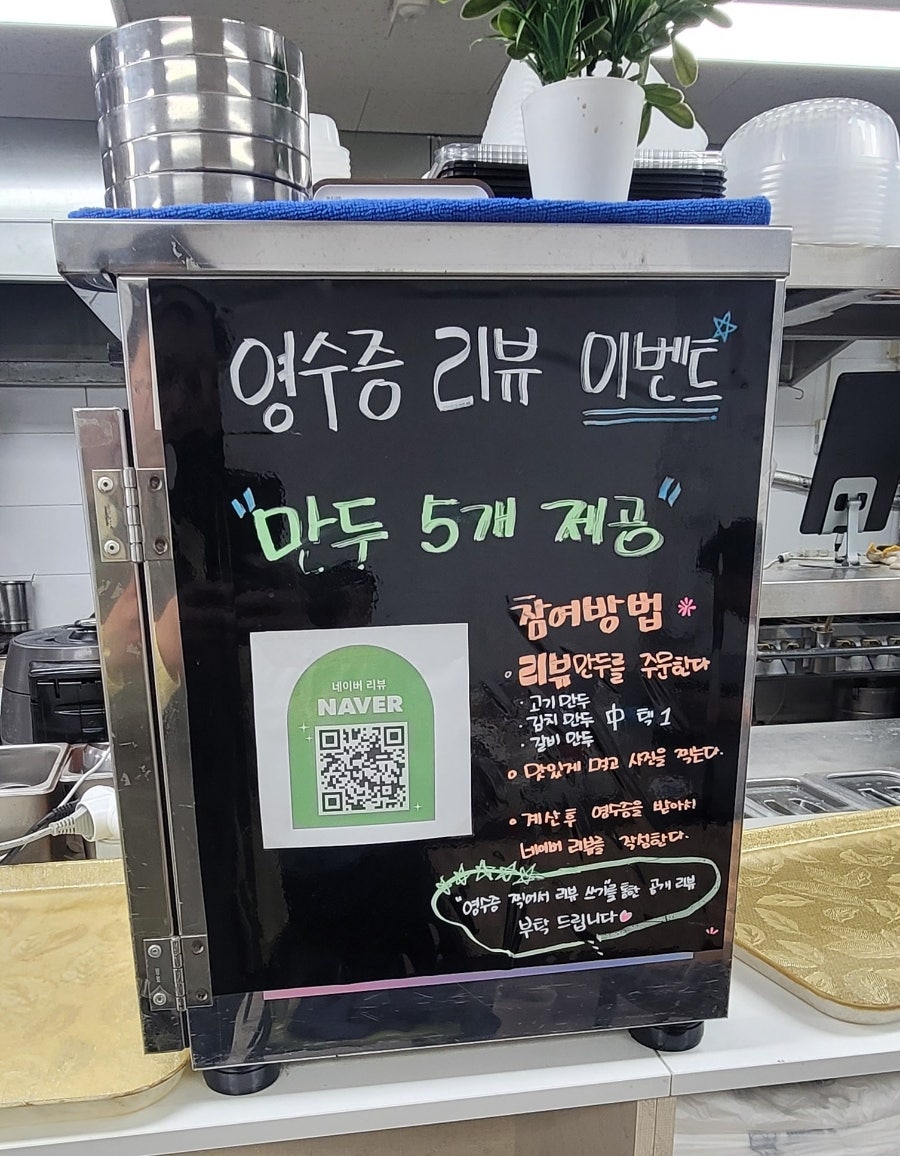 영수증 리뷰 이벤트
"만두 5개 제공"
참여방법
네이버 리뷰
NAVER
◦ 리뷰만두를 주문한다
· 고기만두
· 김치만두 中 택1
· 갈비만두
◦ 맛있게 먹고 사진을 찍는다.
◦ 계산 후 영수증을 받아서
네이버 리뷰를 작성한다.
"영수증 찍어서 리뷰 쓰기"를 통한 공개 리뷰
부탁 드립니다